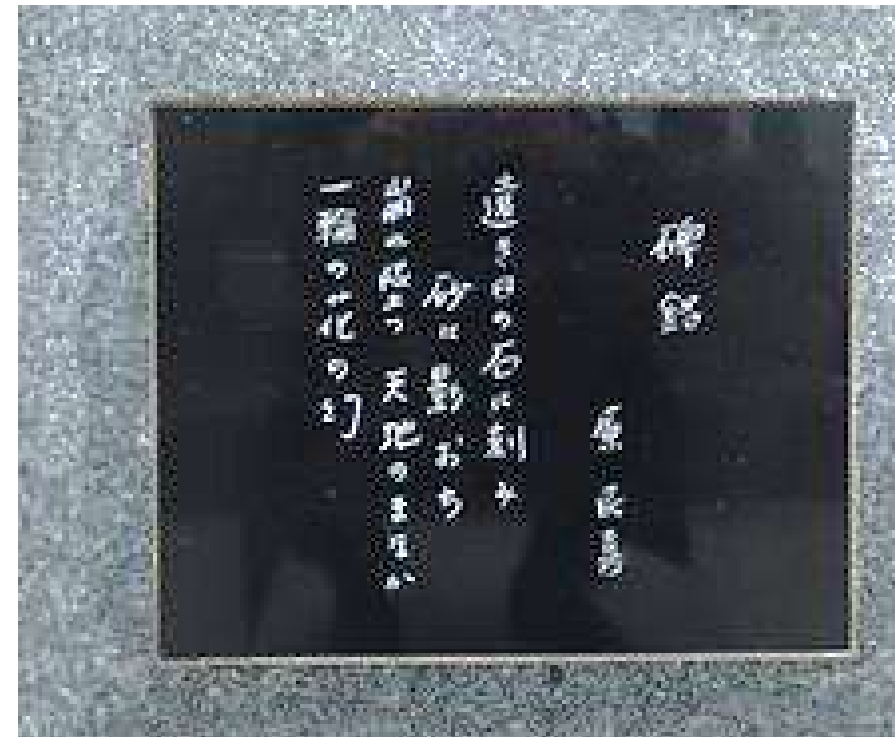 碑銘
原 民喜
遠き日の石に刻み
砂に影おち
崩れ墜つ 天地のまなか
一輪の花の幻